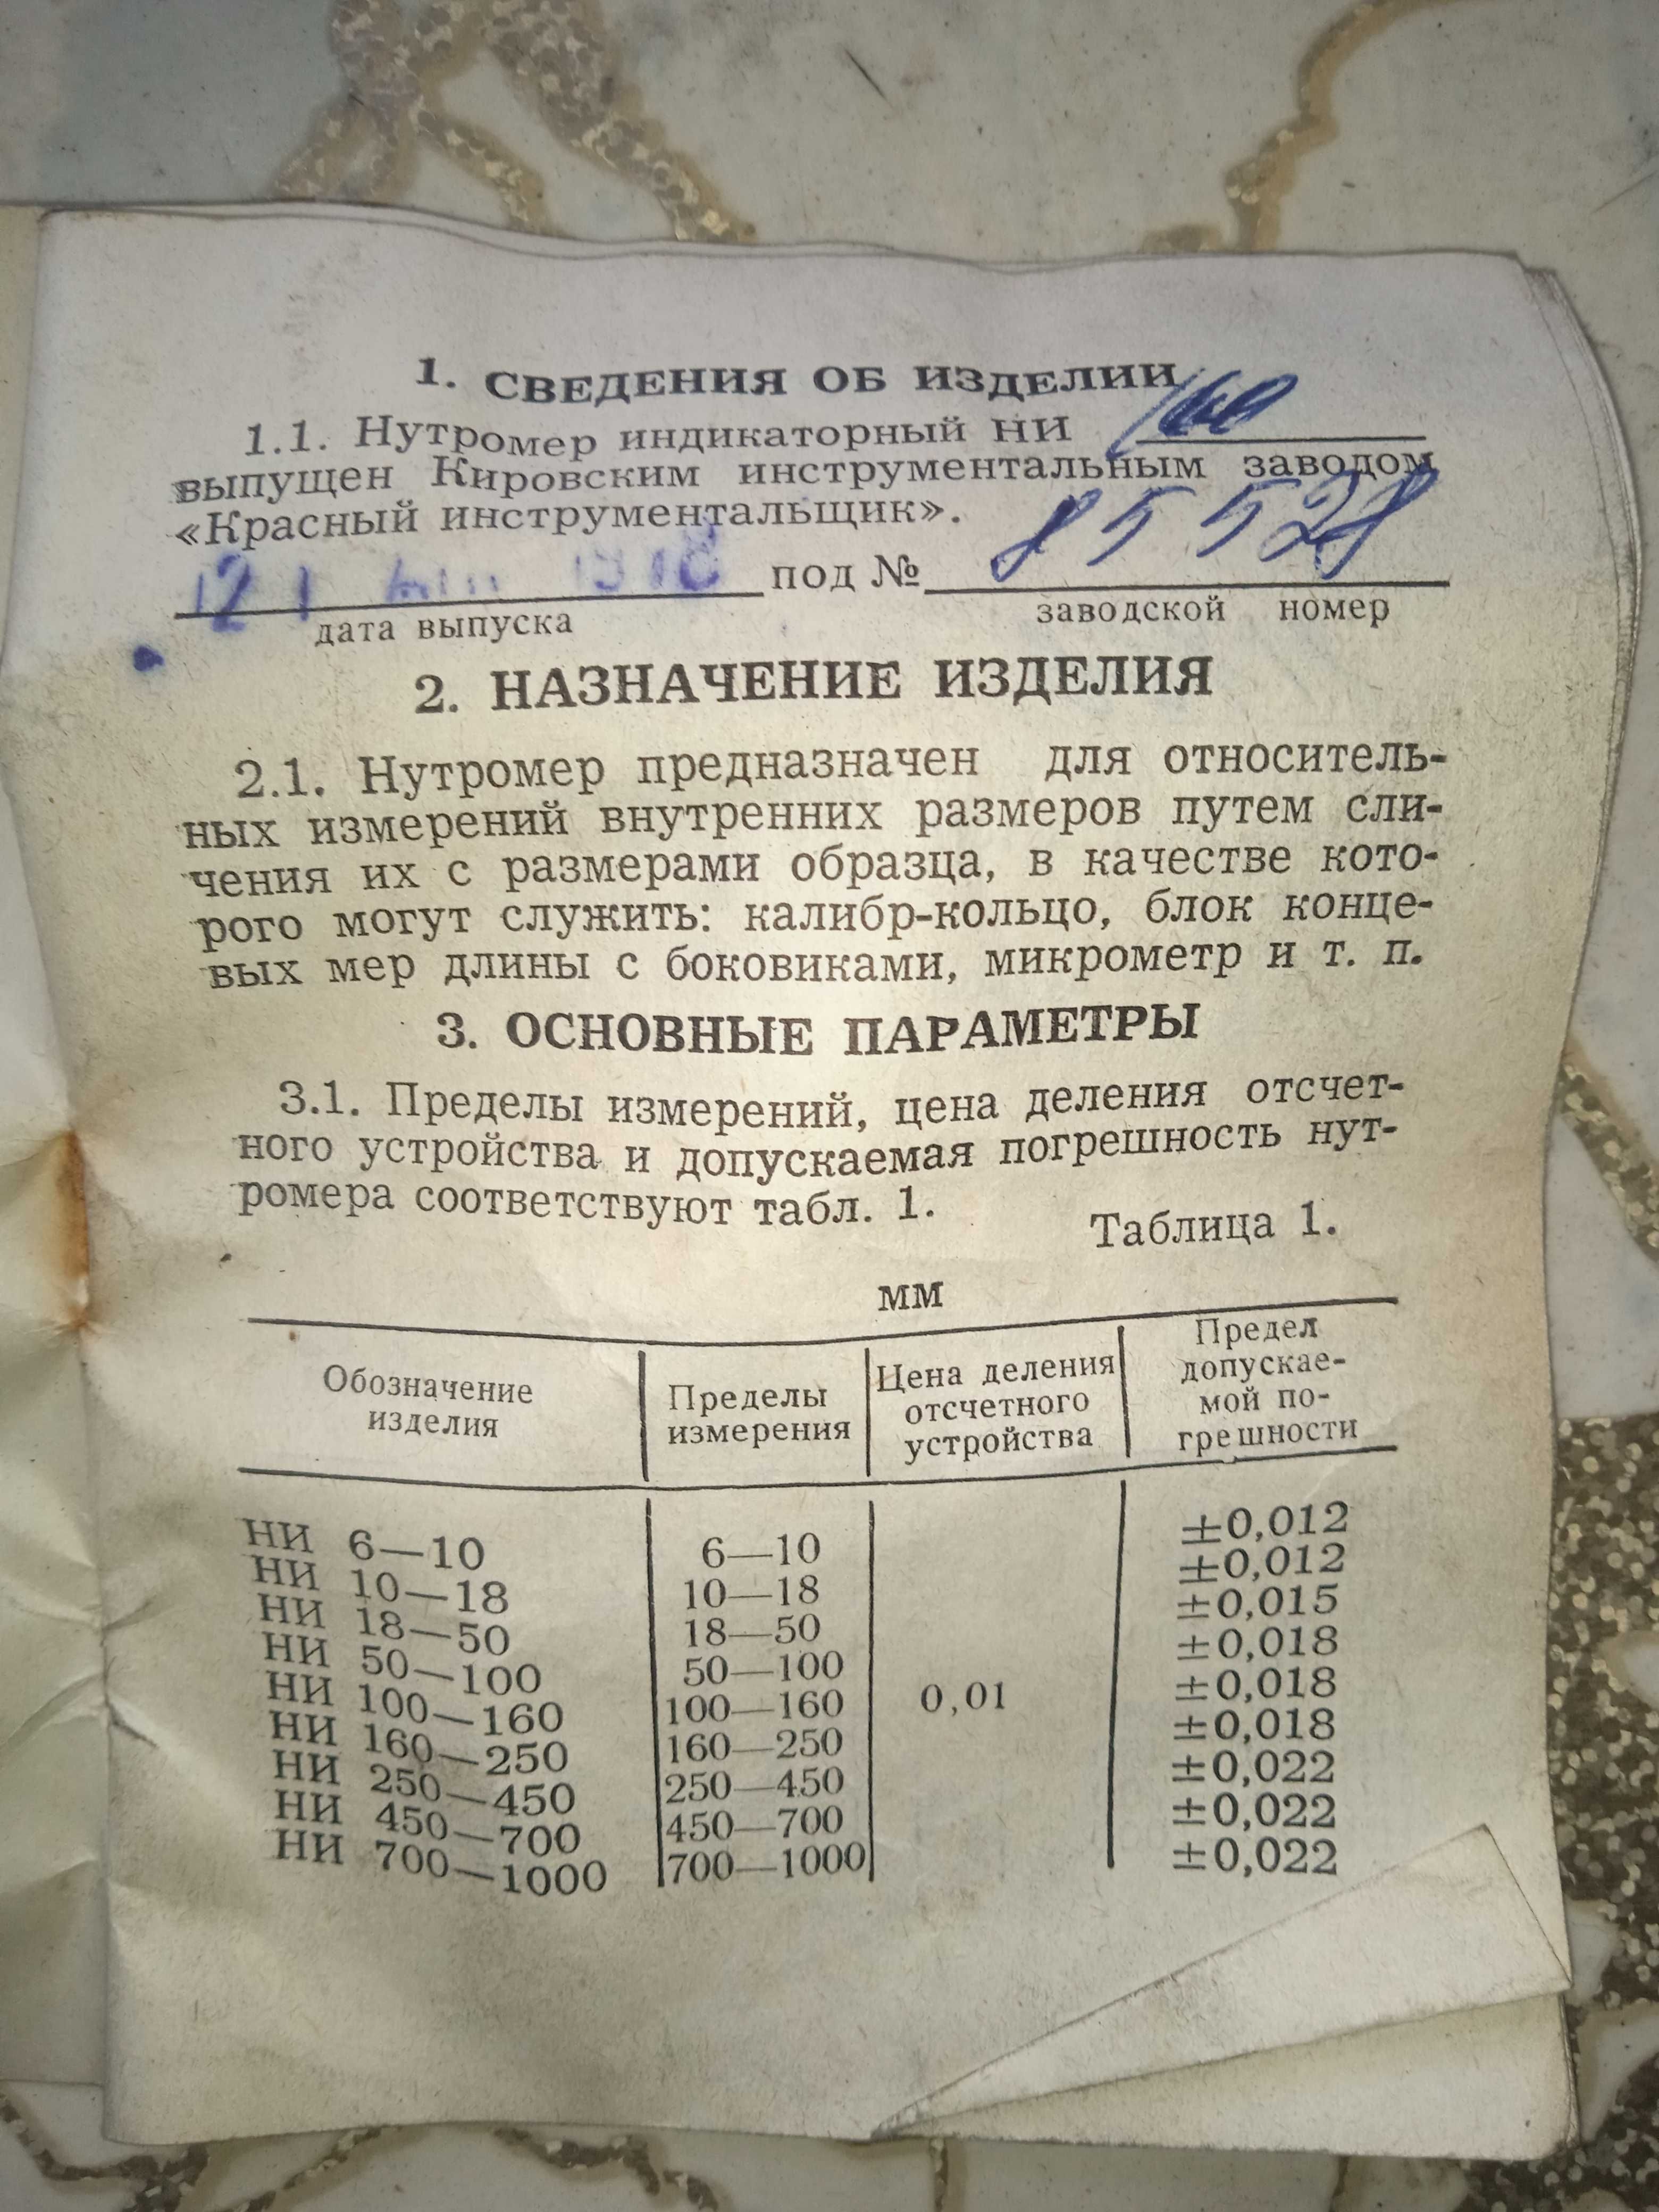 1. СВЕДЕНИЯ ОБ ИЗДЕЛИИ
1.1. Нутромер индикаторный НИ 160
выпущен Кировским инструментальным заводом
«Красный инструментальщик».
под № 85528
дата выпуска заводской номер
2. НАЗНАЧЕНИЕ ИЗДЕЛИЯ
2.1. Нутромер предназначен для относитель-
ных измерений внутренних размеров путем сли-
чения их с размерами образца, в качестве кото-
рого могут служить: калибр-кольцо, блок конце-
вых мер длины с боковиками, микрометр и т. п.
3. ОСНОВНЫЕ ПАРАМЕТРЫ
3.1. Пределы измерений, цена деления отсчет-
ного устройства и допускаемая погрешность нут-
ромера соответствуют табл. 1.
Таблица 1.
мм
Обозначение
изделия
Пределы
измерения
Цена деления
отсчетного
устройства
Предел
допускае-
мой по-
грешности
НИ 6—10 6—10 ±0,012
НИ 10—18 10—18 ±0,012
НИ 18—50 18—50 ±0,015
НИ 50—100 50—100 ±0,018
НИ 100—160 100—160 0,01 ±0,018
НИ 160—250 160—250 ±0,018
НИ 250—450 250—450 ±0,022
НИ 450—700 450—700 ±0,022
НИ 700—1000 700—1000 ±0,022